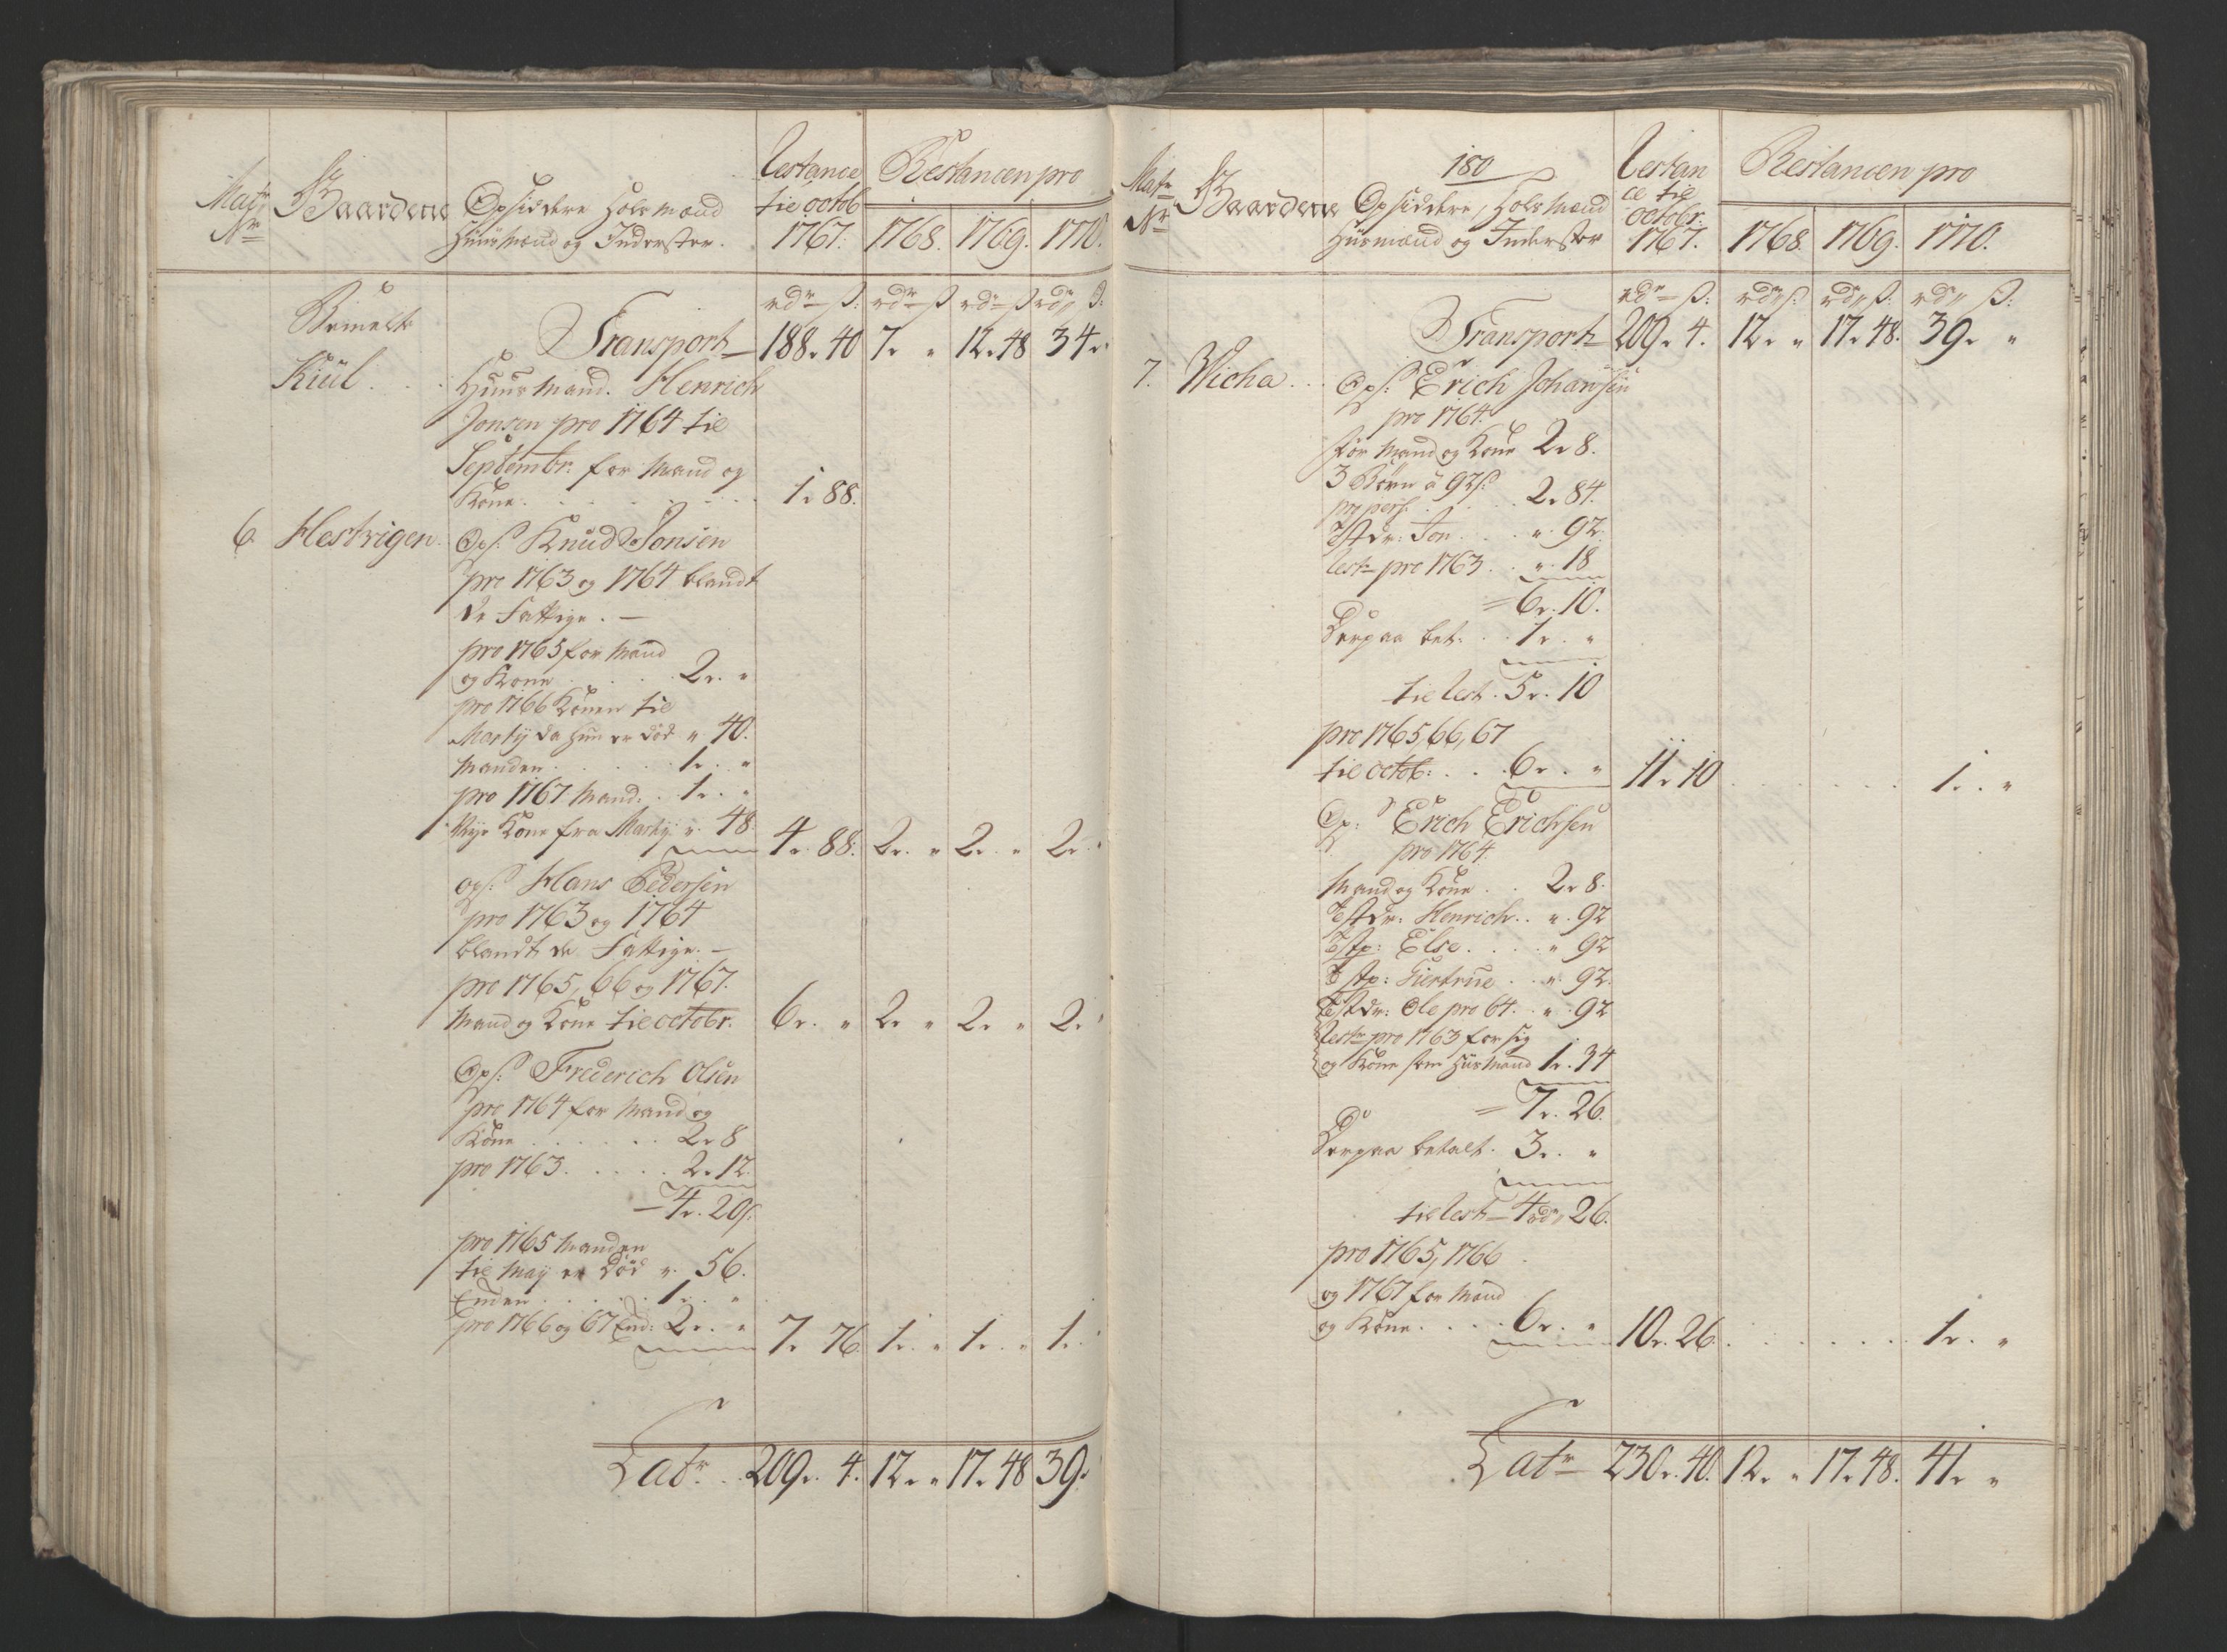 Matr Nr
Gaardene
Opsiddere Holsmænd
Huusmænd og Inderster.
Restance
til octob
1767.
Restancen pro
1768. 1769. 1770.
rdr ß: rdr ß rdr ß rdr ß:
Transport 188. 40 7. " 12. 48 34.
Kiül . . . Huusmand. Henrich
Jonsen pro 1764 til
Septembr: for Mand og
Kone . . . . . 1. 88.
6. Hestvigen. Ops: Knud Jonsen
pro 1763 og 1764 blandt
de Fattige. —
pro 1765 for Mand
og Kone . . . . 2r. "
pro 1766 Konen til
Martij da hun er død " 40.
Manden . . . . . 1r. "
pro 1767 Mand. . 1r. "
Nye Kone fra Martij " 48. 4r. 88. 2r. " 2r. " 2r. "
Ops: Hans Pedersen
pro 1763 og 1764
blandt de Fattige. —
pro 1765, 66 og 1767.
Mand og Kone til octobr. 6r. " 2r " 2r " 2r "
Ops: Frederich Olsen
pro 1764 for Mand og
Kone . . . . . . 2r 8
pro 1763. . . . . 2. 12.
4r. 20ß.
pro 1765 Manden
til Maij er død ". 56.
Enken . . . . . 1r. "
pro 1766 og 67 Enk: 2r. " 7. 76 1r. " 1r. " 1.
Latr. . 209r. 4. 12r. " 17r 48 39.
Matr Nr
Gaardene
180
Opsiddere, Holsmænd
Huusmænd og Inderster
Restan
ce til
octobr.
1767.
Restancen pro
1768. 1769. 1770.
rdr ß: rdr ß: rdr ß: rdr ß:
Transport 209r 4. 12r. " 17r 48. 39r "
7. Wicha . . . Ops: Erich Johansen
pro 1764.
for Mand og Kone 2r 8.
3 Børn á 92ß:
pro pers: . . . . 2r 84.
Tstdr: Jon . . . " 92.
Rest pro 1763. . ". 18
= 6r. 10.
Derpaa bet: . . 1r. "
til Rest. 5r. 10
pro 1765, 66, 67
til octob: . . . 6r. " 11r 10 . . . . . . 1. . "
Op: Erich Erichsen
pro 1764.
Mand og Kone . . 2r 8.
Tstdr: Henrich. . ". 92
Tstp: Else. . . . " 92
Tstp: Giertrue . . ". 92.
Tstdr: Ole pro 64. . " 92
Rest pro 1763 for sig
og Kone som Huusmand 1r. 34
= 7r. 26.
Derpaa betalt. 3r. "
til Rest 4rdr 26.
pro 1765, 1766
og 1767 for Mand
og Kone. . . . 6r. " 10r. 26. . . . . . . . 1r. "
Latr 230r. 40. 12r. " 17r. 48. 41r "